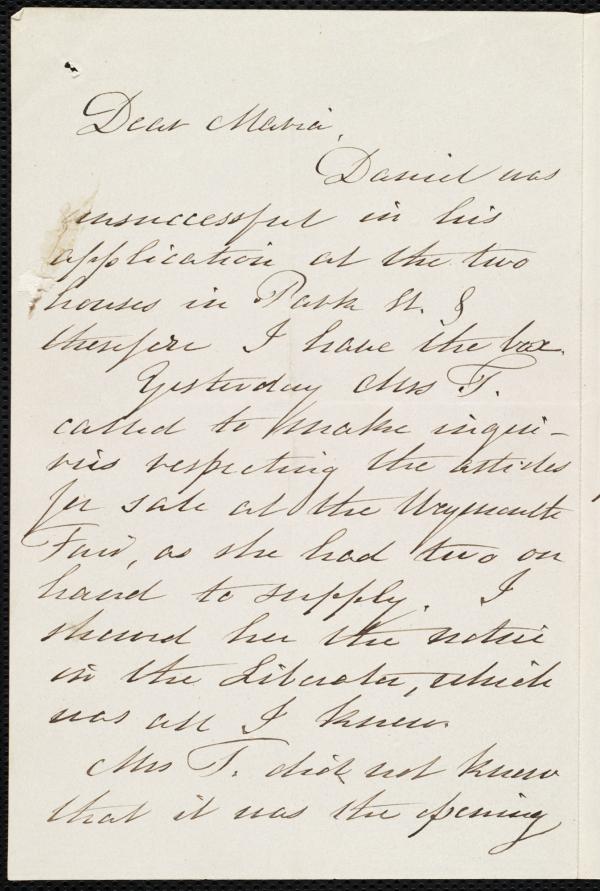 Dear Maria,
Daniel was
unsuccessful in his
application at the two
houses in Park St. &
therefore I have the box.
Yesterday Mrs T.
called to make inqui-
ries respecting the articles
for sale at the Weymouth
Fair, as she had two on
hand to supply. I
showed her the notice
in the Liberator, which
was all I knew.
Mrs T. did not know
that it was the opening